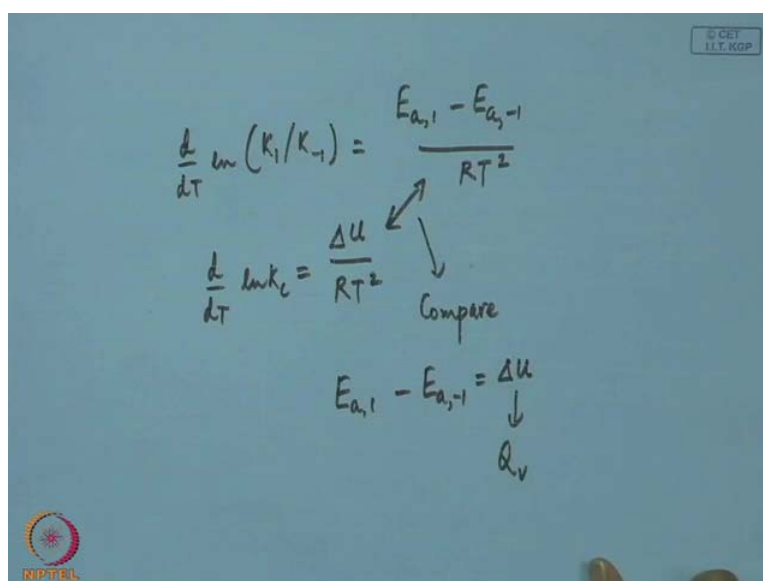 © CET
I.I.T. KGP
d/dT ln (K₁/K₋₁) = (Eₐ,₁ − Eₐ,₋₁) / RT²
d/dT ln K_c = ΔU / RT²
Compare
Eₐ,₁ − Eₐ,₋₁ = ΔU
↓
Q_v
NPTEL